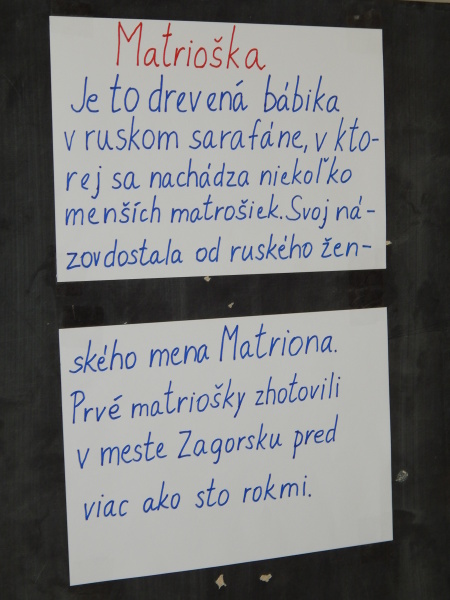 Matrioška
Je to drevená bábika
v ruskom sarafáne, v kto-
rej sa nachádza niekoľko
menších matrošiek. Svoj ná-
zov dostala od ruského žen-
ského mena Matriona.
Prvé matriošky zhotovili
v meste Zagorsku pred
viac ako sto rokmi.